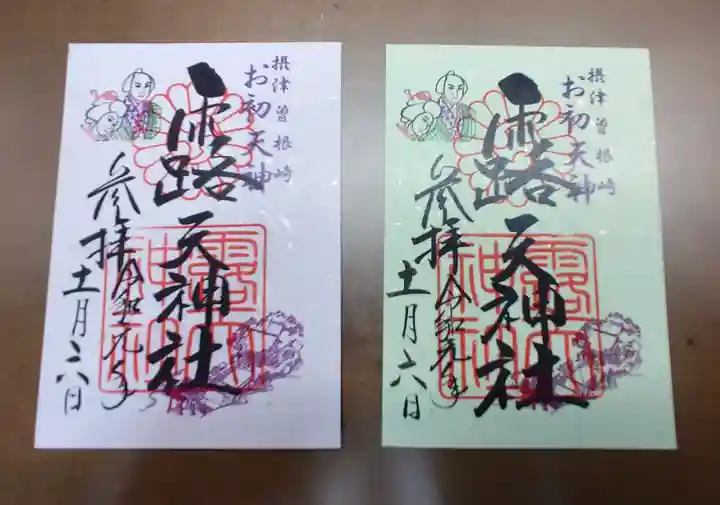 摂津曽根崎
お初天神
露天神社
露天神社
参拝
令和元年
十一月六日
摂津曽根崎
お初天神
露天神社
露天神社
参拝
令和元年
十一月六日